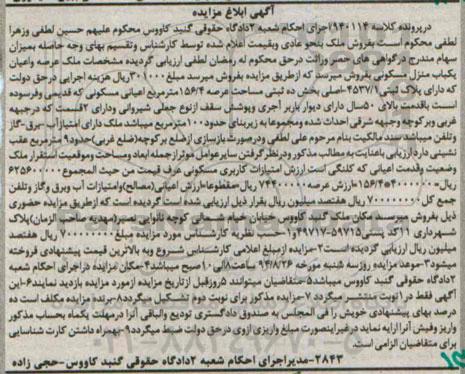 آگهی ابلاغ مزایده
درپرونده کلاسه ۹۴۰۱۱۴اجرای احکام شعبه ۲دادگاه حقوقی گنبد کاووس محکوم علیهم حسین لطفی وزهرا
لطفی محکوم است بفروش ملک بنحو عادی وبقیمت اعلام شده توسط کارشناس وتقسیم بهای وجه حاصله بمیزان
سهام مندرج درگواهی های حصر وراثت درحق محکوم له رمضان لطفی ارزیابی گردیده مشخصات ملک عرصه واعیان
یکباب منزل مسکونی بفروش میرسد که ازطریق مزایده بفروش میرسد مبلغ ۳۰۱۰۰۰ریال هزینه اجرایی درحق دولت
که دارای پلاک ثبتی ۴۵۳۷/۱-اصلی بخش ده ثبتی مساحت عرصه ۱۵۶/۴مترمربع اعیانی مسکونی که قدیمی وفرسوده
است باقدمت بالای ۵۰سال دارای دیوار باربر آجری وپوشش سقف ازنوع جعلی شیروانی ودارای ۲قسمت که درجبهه
غربی وبر کوچه وجبهه شرقی احداث شده ومجموعا به زیربنای حدود ۱۰۰مترمربع میباشد.ملک دارای امتیاز آب-برق-گاز
وتلفن میباشد سند مالکیت بنام مرحوم علی لطفی ودرصورت بازسازی ازضلع برکوچه(ضلع غربی)حدود۹ مترمربع عقب
نشینی دارد ارزیابی باعنایت به مطالب مذکور ودرنظر گرفتن سایرعوامل موثرازجمله ابعاد ومساحت وموقعیت استقرار ملک
وضعیت وقدمت اعیانی که کلنگی است ارزش امتیازات کاربری مسکونی عرف قیمت من حیث المجموع ۶۲۵۶۰۰۰۰۰
ارزش عرصه ریال-مقطوعا-ارزش اعیانی(مصالح)وامتیازات آب وبرق وگاز وتلفن
جمع کل ۷۰۰۰۰۰۰۰۰ ریال هفتصد میلیون ریال بقرار ذیل ارزیابی شده است گردیده است که ازطریق مزایده حضوری
ذیل بفروش میرسد مکان ملک گنبد کاووس خیابان خیام شمالی کوچه نانوایی نصر(مهدیه صاحب الزمان)پلاک
شهرداری ۱۱کد پستی ۵۹۷۱۵-۴۹۷۱۷ ۱-حسب نظریه کارشناس مورد مزایده مبلغ ۷۰۰۰۰۰۰۰۰ ریال هفتصد
میلیون ریال ارزیابی گردیده است ۲-مزایده ازمبلغ اعلامی کارشناس شروع وبه بالاترین قیمت پیشنهادی فروخته
میشود۳-موعد مزایده روزسه شنبه مورخه ۹۴/۸/۲۶ ساعت۸الی۱۰صبح میباشد۴-مکان مزایده دراجرای احکام شعبه
۲دادگاه حقوقی گنبد کاووس میباشد۵-متقاضیان میتوانند ۵روزقبل ازتاریخ مزایده ازمورد مزایده بازدید نمایند۶-این
آگهی فقط در۱ نوبت منتشر میگردد ۷-مزایده مذکور برای نوبت دوم تشکیل میگردد۸-برنده مزایده مکلف است ده
درصد بهای پیشنهادی خویش را فی المجلس به صندوق دادگستری تودیع والباقی آنرا درمهلت یکماه بحساب مذکور
واریز وفیش آنرا ارایه نماید درغیراینصورت مبلغ واریزی ازوی درحق دولت ضبط میگردد۹-بهمراه داشتن کارت شناسایی
برای متقاضیان الزامی است.
۲۸۴۳-مدیراجرای احکام شعبه ۲دادگاه حقوقی گنبد کاووس-حجی زاده